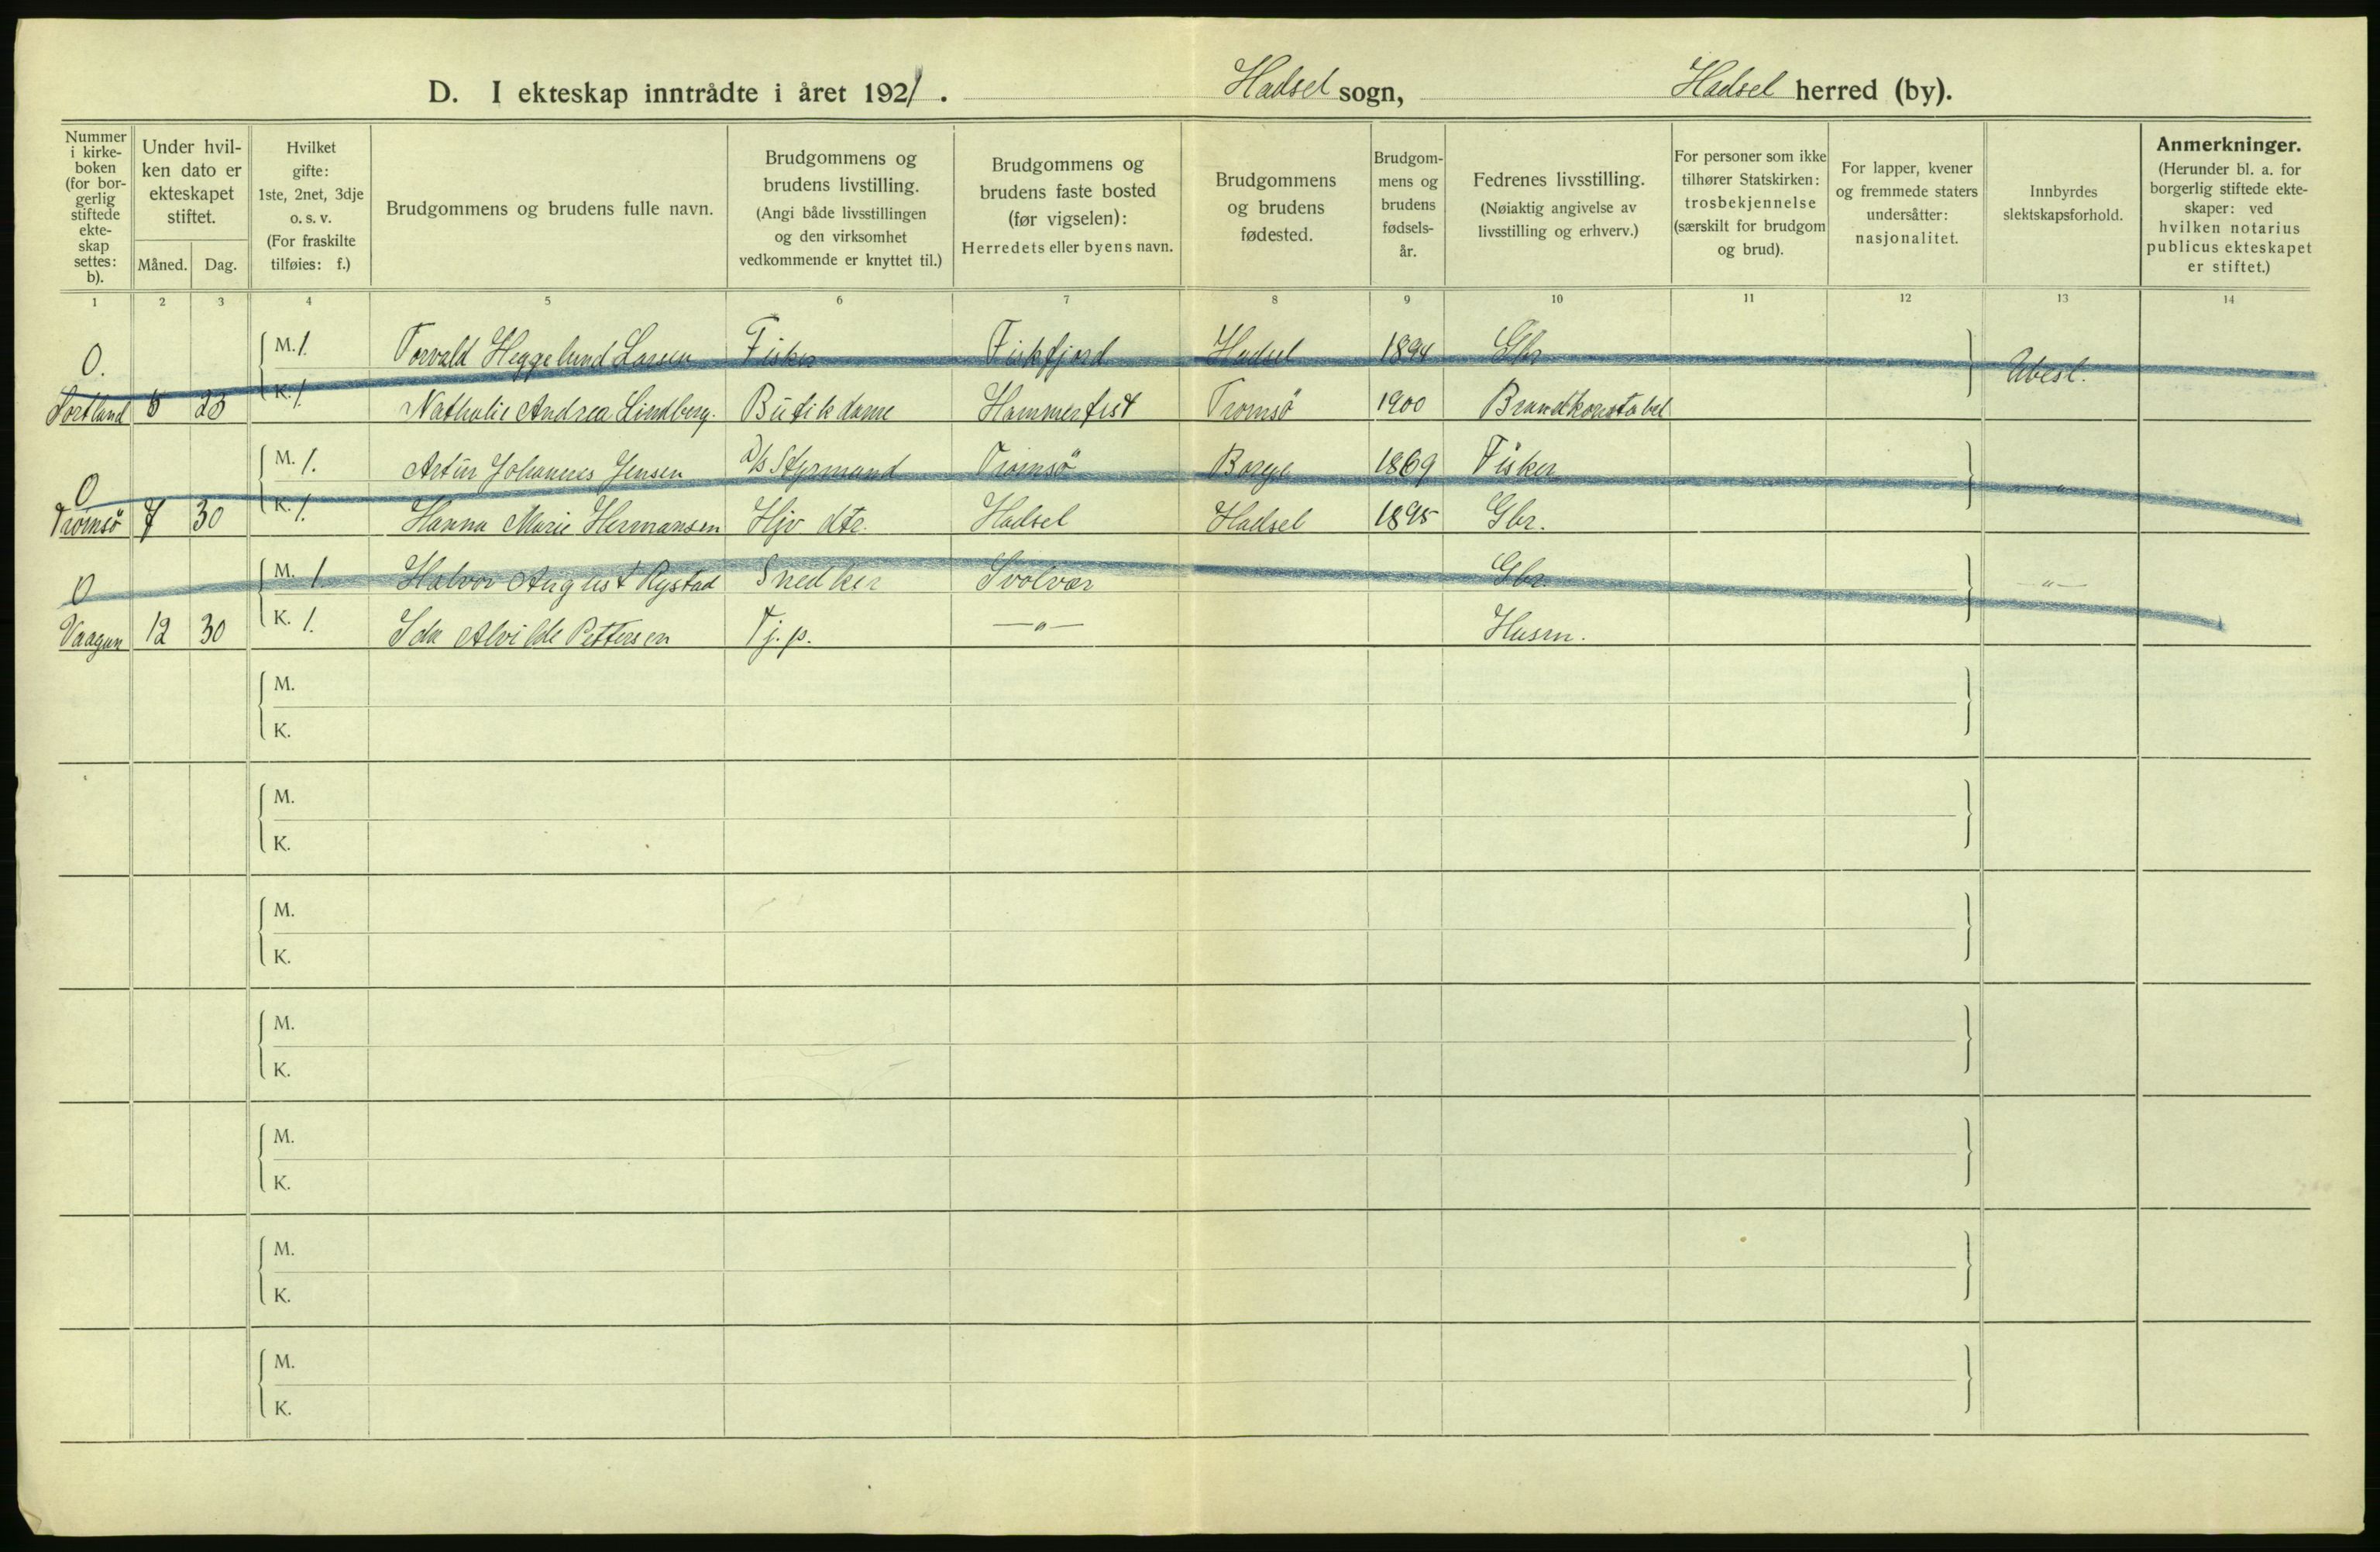 D. I ekteskap inntrådte i året 1921. Hadsel sogn, Hadsel herred (by).
Nummer i kirke- boken (for bor- gerlig stiftede ekte- skap settes: b).
Under hvil- ken dato er ekteskapet stiftet.
Måned. Dag.
Hvilket gifte: 1ste, 2net, 3dje o. s. v. (For fraskilte tilføies: f.)
Brudgommens og brudens fulle navn.
Brudgommens og brudens livstilling. (Angi både livsstillingen og den virksomhet vedkommende er knyttet til.)
Brudgommens og brudens faste bosted (før vigselen): Herredets eller byens navn.
Brudgommens og brudens fødested.
Brudgom- mens og brudens fødsels- år.
Fedrenes livsstilling. (Nøiaktig angivelse av livsstilling og erhverv.)
For personer som ikke tilhører Statskirken: trosbekjennelse (særskilt for brudgom og brud).
For lapper, kvener og fremmede staters undersåtter: nasjonalitet.
Innbyrdes slektskapsforhold.
Anmerkninger. (Herunder bl. a. for borgerlig stiftede ekte- skaper: ved hvilken notarius publicus ekteskapet er stiftet.)
1 2 3 4 5 6 7 8 9 10 11 12 13 14
O. M. 1. Torvald Heggelund Larsen Fisker Fiskfjord Hadsel 1894 Gbr Ubesl.
Sortland 5 23 K. 1. Nathalie Andrea Lindberg. Butikdame Hammerfest Tromsö 1900 Brandkonstabel
O M. 1. Artur Johannes Jensen D/s Styrmand Tromsö Borge 1869 Fisker "
Tromsö 7 30 K. 1. Hanna Marie Hermansen Hjv. dtr. Hadsel Hadsel 1895 Gbr.
O M. 1 Halvor August Rystad Snedker Svolvær Gbr. — " —
Vaagan 12 30 K. 1. Ida Alvilde Pettersen Tj. p. — " — Husm.
M.
K.
M.
K.
M.
K.
M.
K.
M.
K.
M.
K.
M.
K.